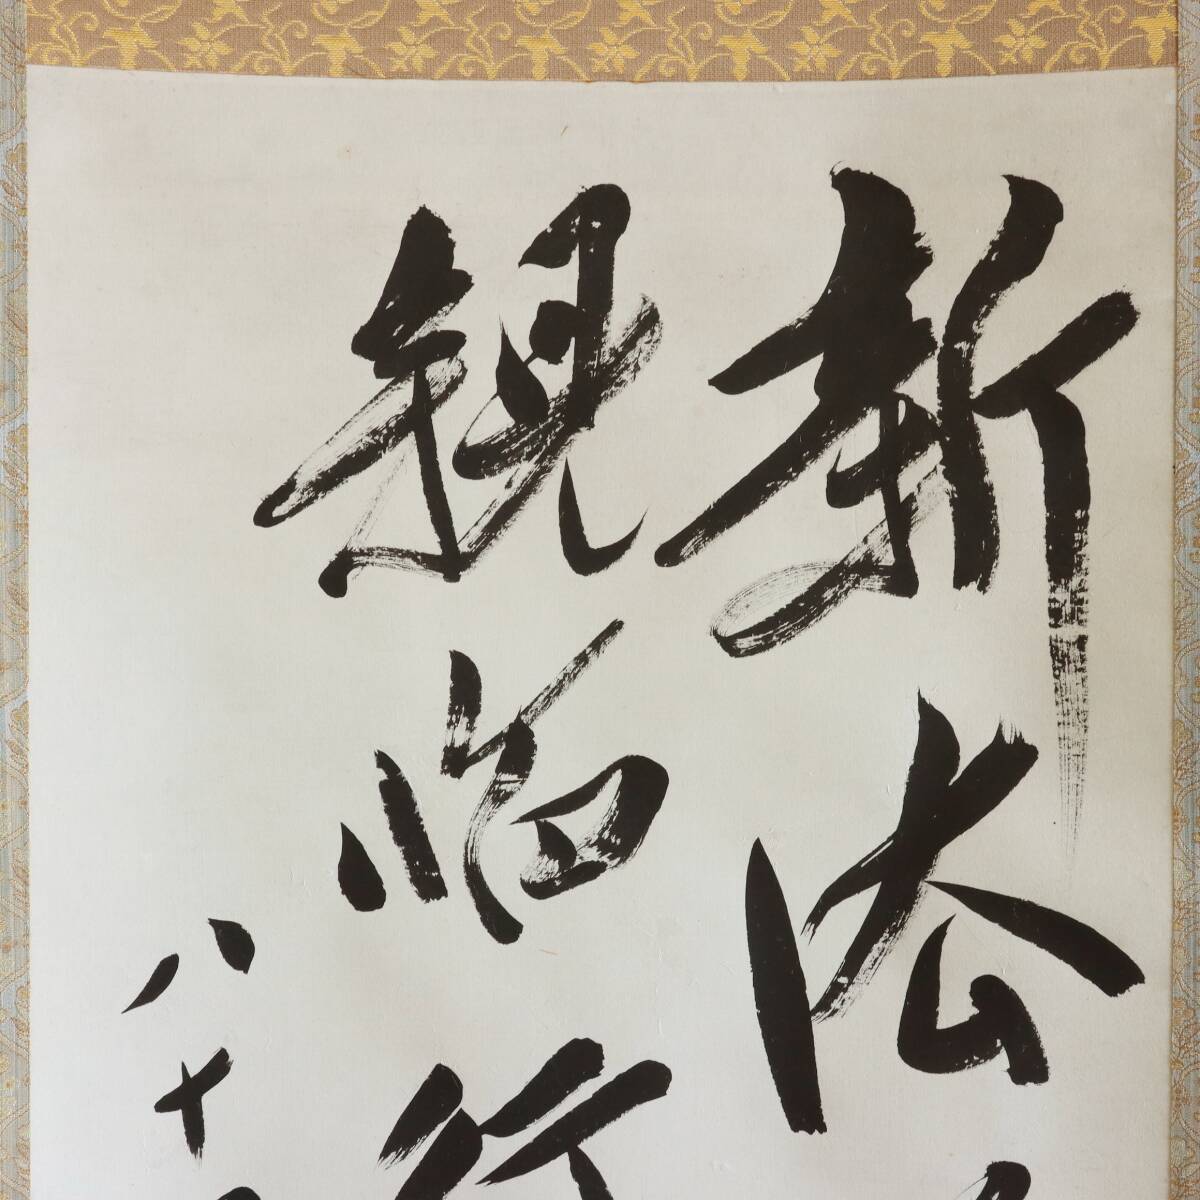 新法
親臨行
八十